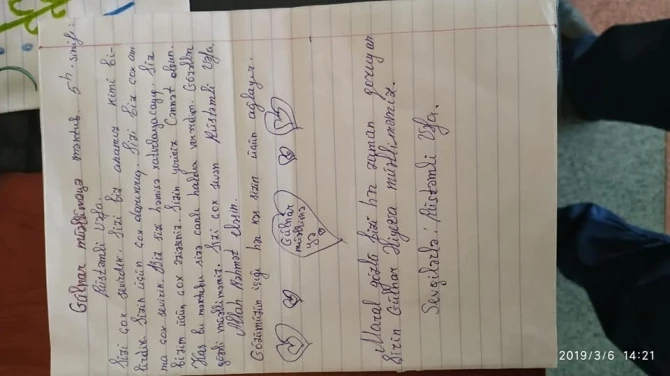 Gülnar müəlliməyə məktub. 5ᵇ. sinfi:
Rüstəmli Vəfa.
Sizi çox sevirdik. Sizi biz anamız kimi bi-
lirdik. Sizin üçün çox darıxırıq. Sizi biz çox am
ma çox sevirik. Biz sizi həmişə xatırlayacayıq. Siz
bizim üçün çox əzizsiniz. Sizin yeriniz Cənnət olsun.
Kaş bu məktubu sizə canlı halda verərdim. Gözəllər
gözəli müəlliməmiz. Sizi çox sevən Rüstəmli Vəfa.
Allah Rəhmət eləsin.
Gözümüzün işığı hər kəs sizin üçün ağlayır.
Gülnar
müəllimə
yə
Maral gözlü bizi hər zaman qoruyan
Şirin Gülnar Ziyeva müəlliməmiz.
Sevgilərlə: Rüstəmli Vəfa.
2019/3/6 14:21